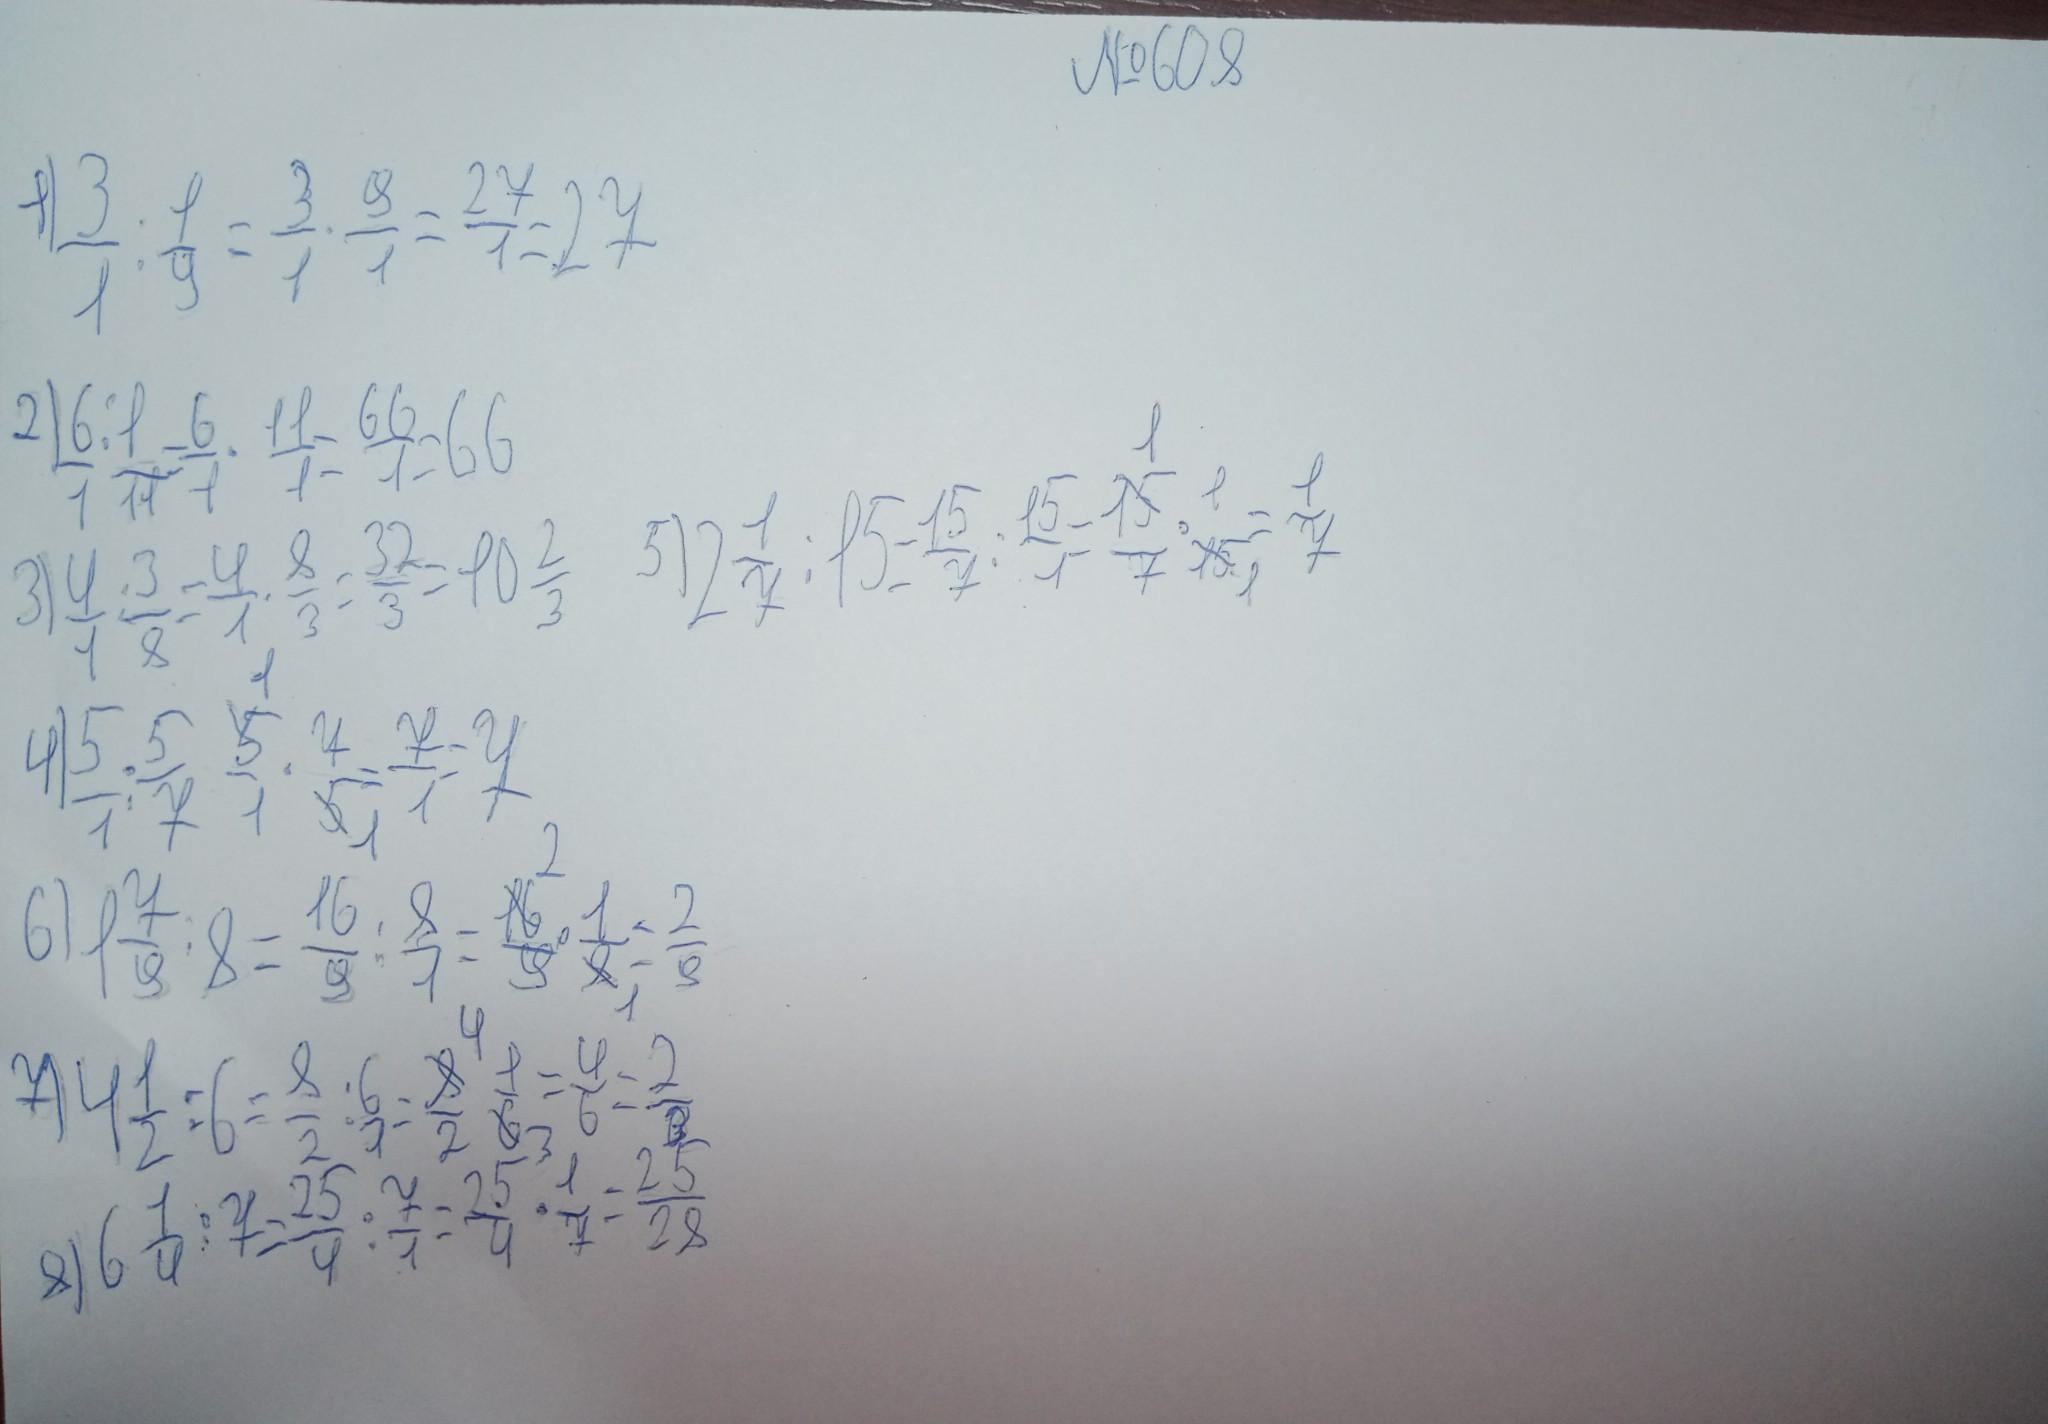 №608
1) 3/1 : 1/9 = 3/1 · 9/1 = 27/1 = 27
2) 6/1 : 1/11 = 6/1 · 11/1 = 66/1 = 66
3) 4/1 : 3/8 = 4/1 · 8/3 = 32/3 = 10 2/3
5) 2 1/7 : 15 = 15/7 : 15/1 = 15/7 · 1/15 = 1/7
4) 5/1 : 5/7 5/1 · 7/5 = 7/1 = 7
6) 1 7/9 : 8 = 16/9 : 8/1 = 16/9 · 1/8 = 2/9
7) 4 1/2 : 6 = 8/2 : 6/1 = 8/2 1/6 = 4/6 = 2/3
8) 6 1/4 : 7 = 25/4 : 7/1 = 25/4 · 1/7 = 25/28